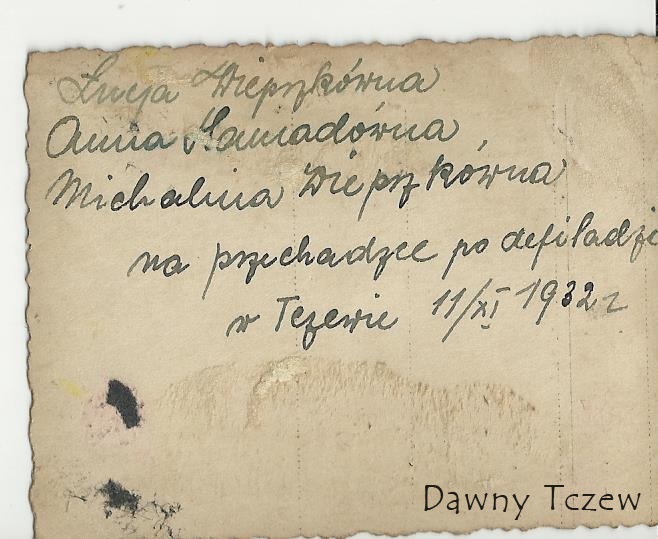 Łucja Wieprzkówna
Anna Hamadówna
Michalina Wieprzkówna
na przechadzce po defiladzi
w Tczewie 11/XI 1932 r
Dawny Tczew